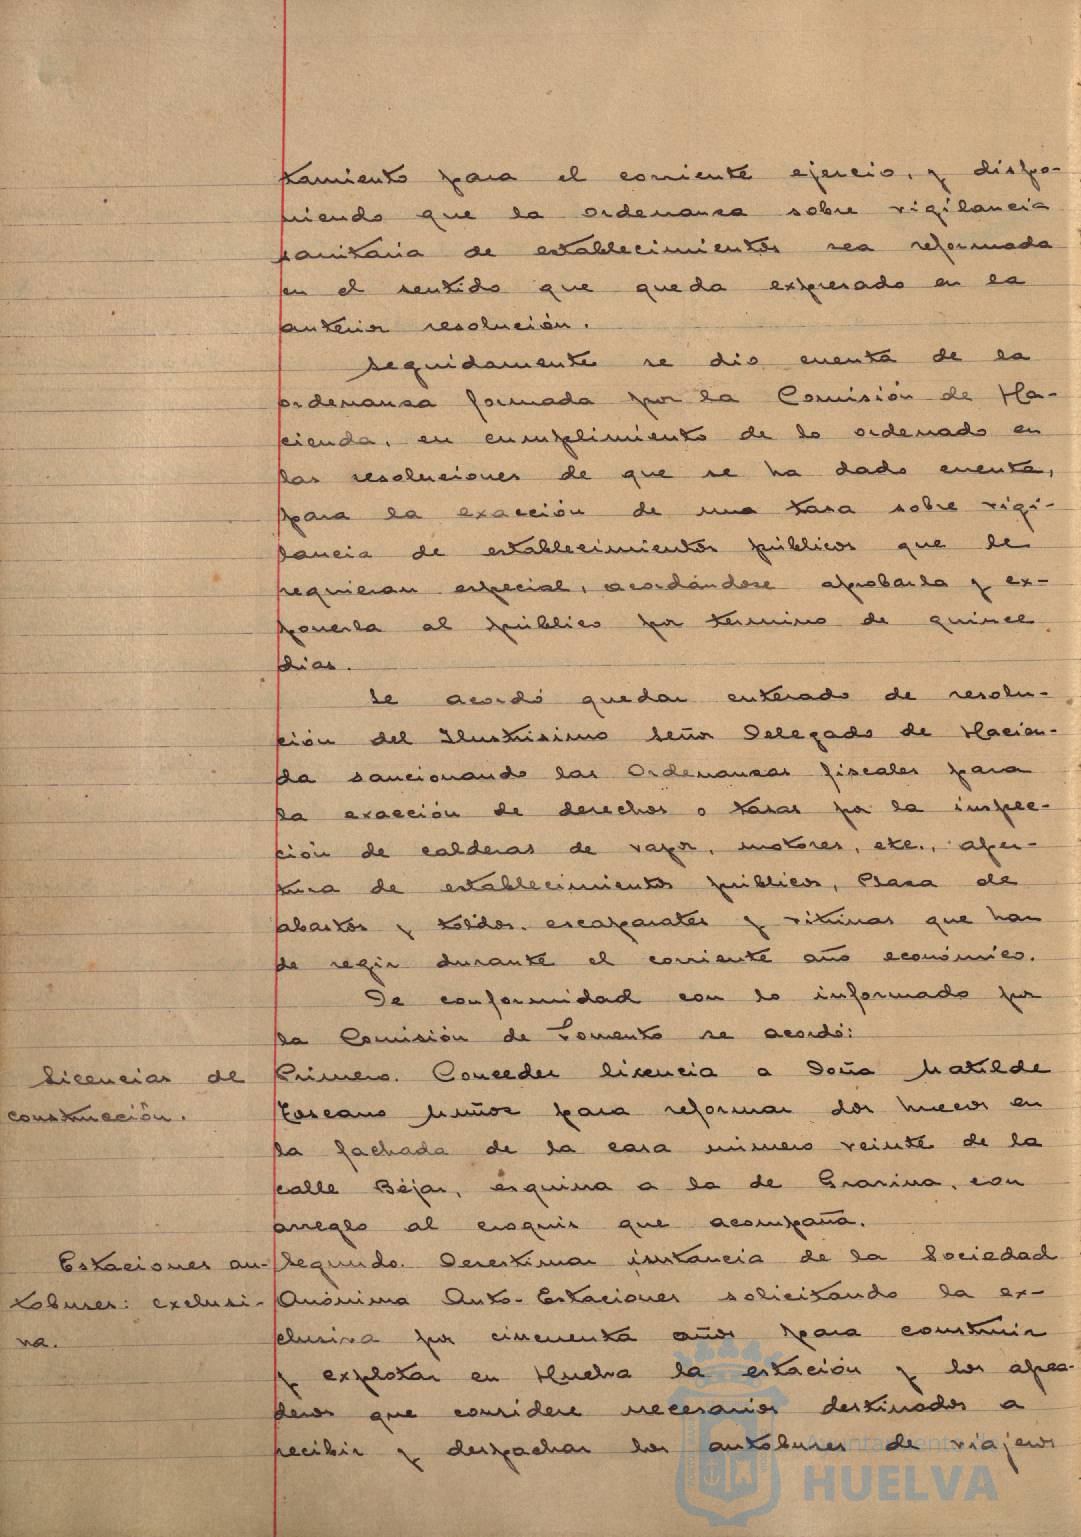 tamiento para el corriente ejercio, y dispo-
niendo que la ordenanza sobre vigilancia
sanitaria de establecimientos sea reformada
en el sentido que queda expresado en la
anterior resolución.
Seguidamente se dio cuenta de la
ordenanza formada por la Comisión de Ha-
cienda, en cumplimiento de lo ordenado en
las resoluciones de que se ha dado cuenta,
para la exacción de una tasa sobre vigi-
lancia de establecimientos públicos que la
requieran especial, acordándose aprobarla y ex-
ponerla al público por término de quince
dias.
Se acordó quedar enterado de resolu-
ción del Ilustrisimo Señor Delegado de Hacien-
da sancionando las Ordenanzas fiscales para
la exacción de derechos o tasas por la inspec-
ción de calderas de vapor, motores, etc., aper-
tura de establecimientos públicos, Plaza de
abastos y toldos, escaparates y vitrinas que han
de regir durante el corriente año económico.
De conformidad con lo informado por
la Comisión de Fomento se acordó:
Licencias de
construcción.
Primero. Conceder licencia a Doña Matilde
Toscano Muñoz para reformar dos huecos en
la fachada de la casa número veinte de la
calle Béjar, esquina a la de Gravina, con
arreglo al croquis que acompaña.
Estaciones au-
tobuses: exclusi-
va.
Segundo. Desestimar instancia de la Sociedad
Anónima Auto-Estaciones solicitando la ex-
clusiva por cincuenta años para construir
y explotar en Huelva la estación y los apea-
deros que considere necesarios destinados a
recibir y despachar los autobuses de viajeros
Ayuntamiento de
HUELVA